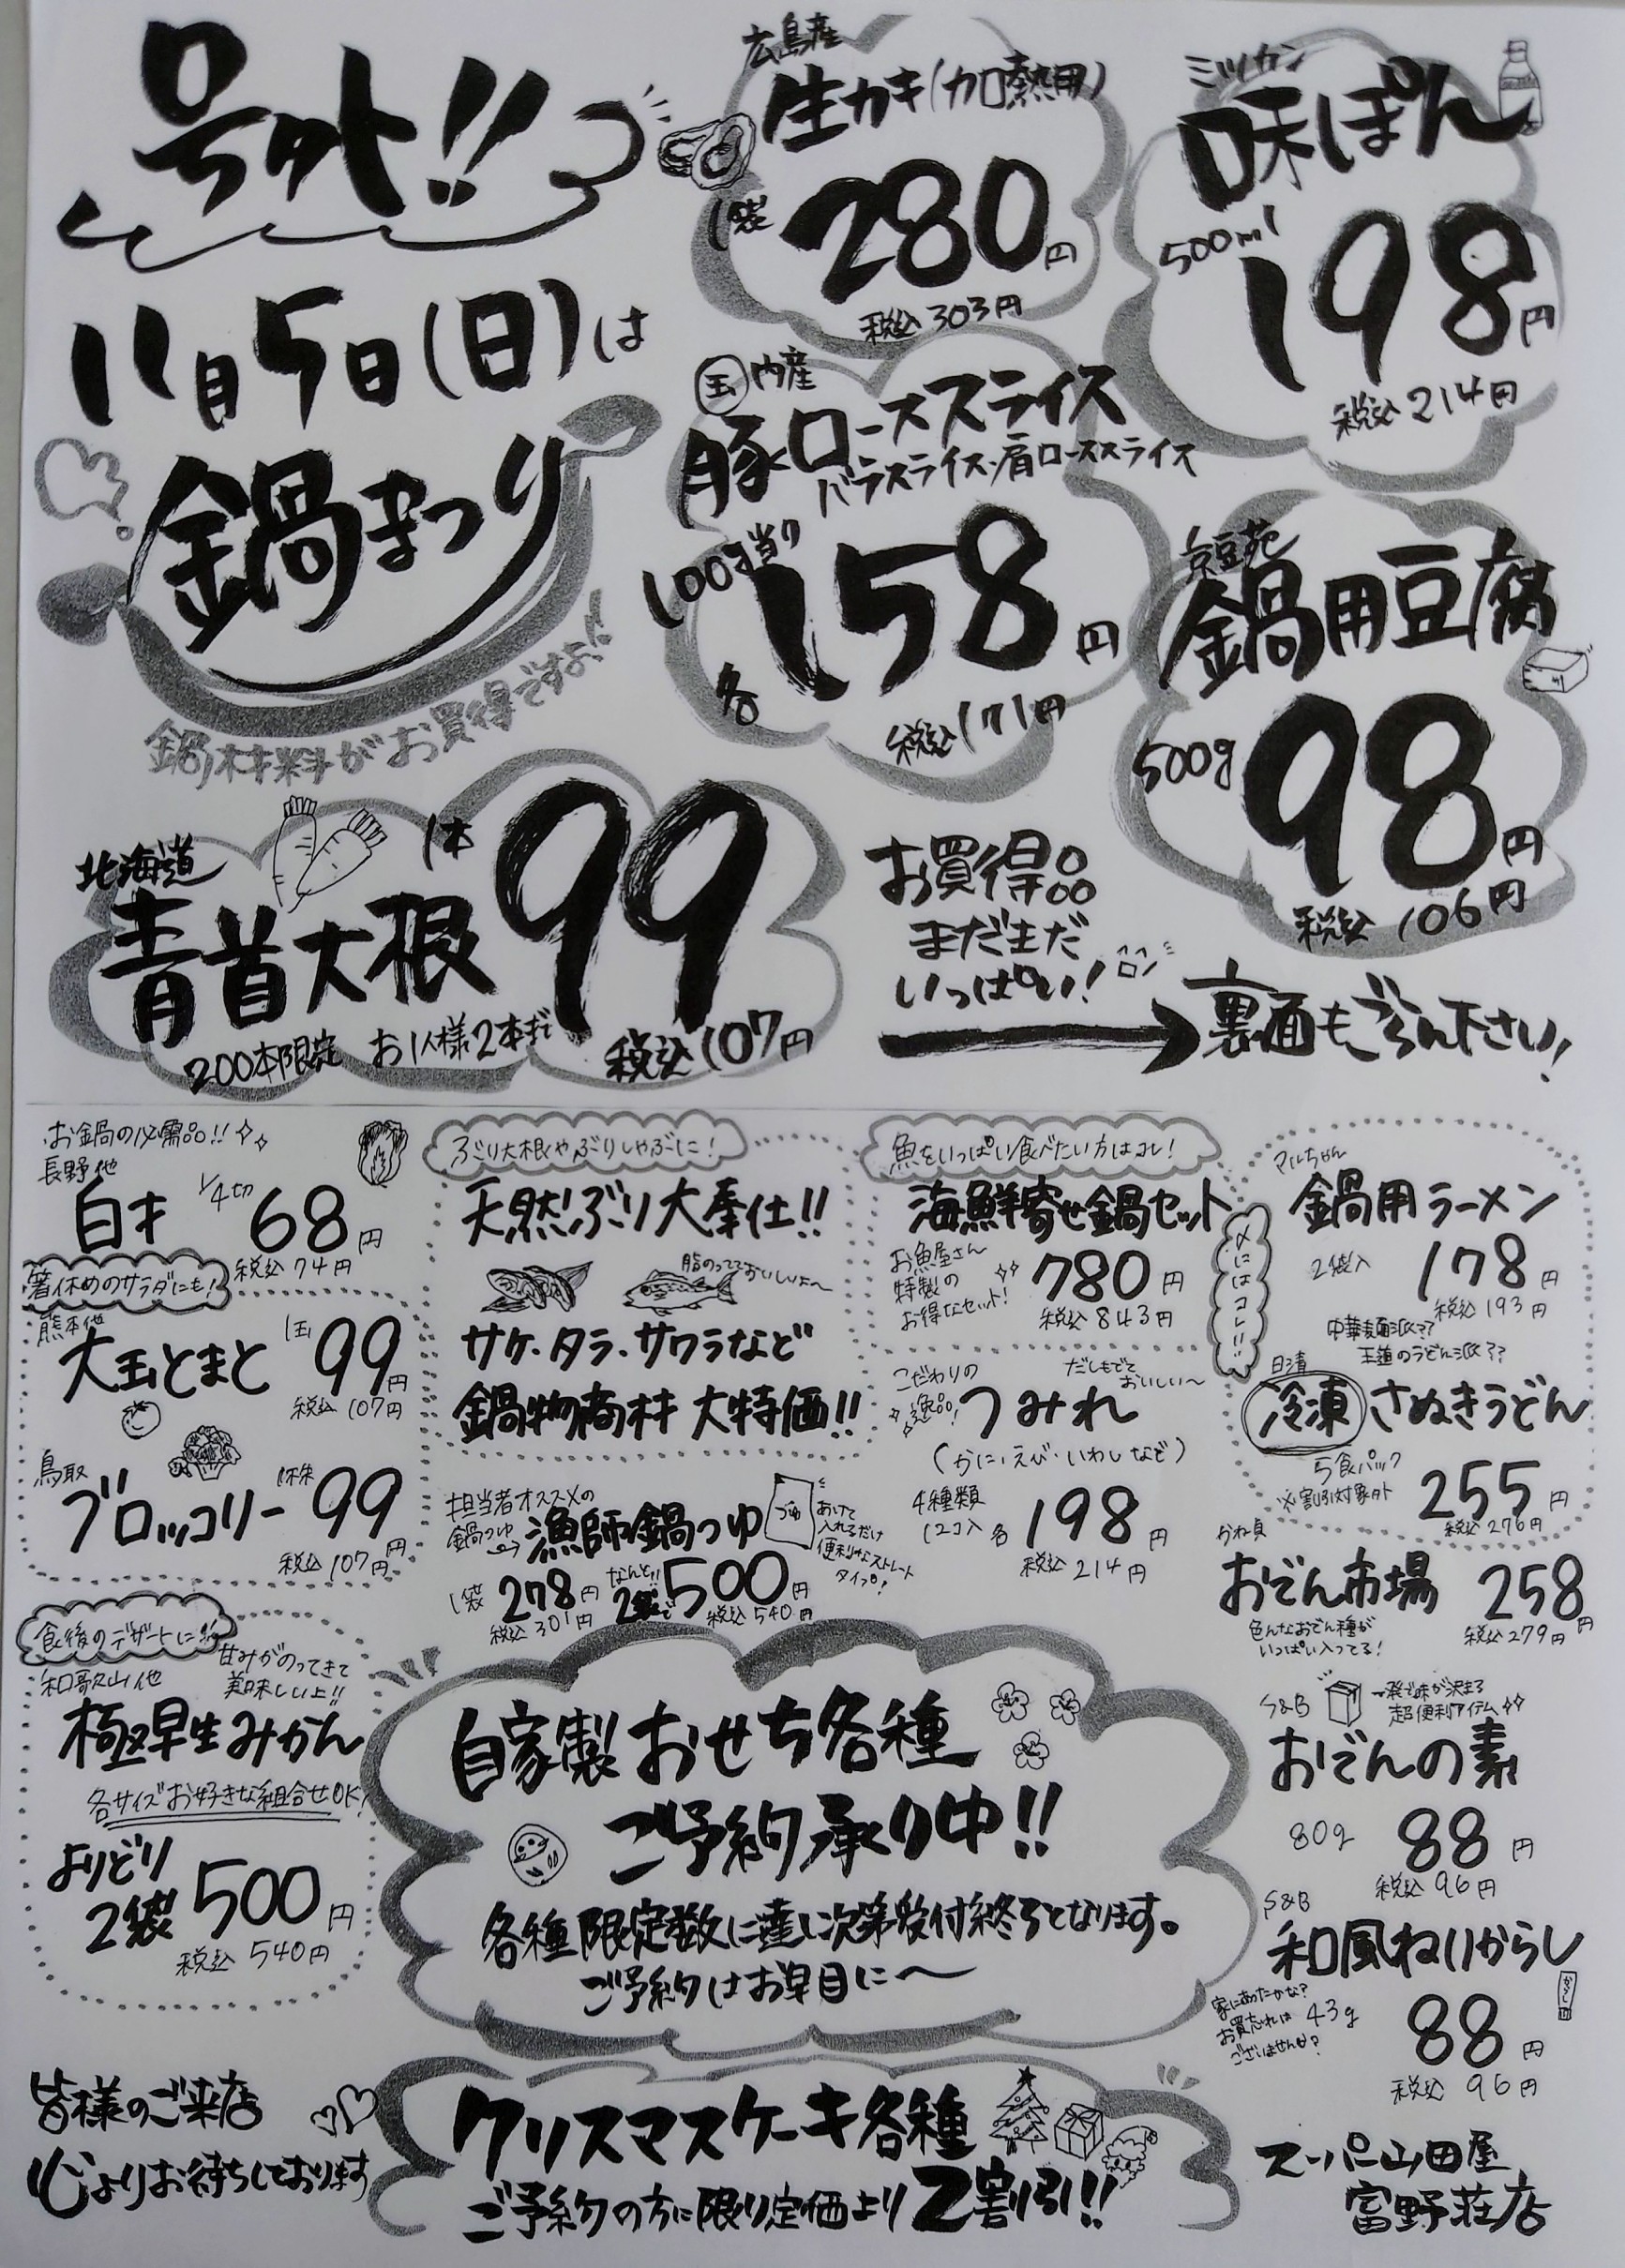 号外!!
11月5日(日)は
鍋まつり
鍋材料がお買得ですよ!!
広島産
生カキ(加熱用)
1袋 280円
税込 303円
ミツカン
味ぽん
500ml 198円
税込 214円
国内産
豚ローススライス
バラスライス・肩ローススライス
100g当り
各 158円
税込 171円
京豆苑
鍋用豆腐
500g 98円
税込 106円
北海道
青首大根
1本 99
税込 107円
200本限定 お1人様2本まで
お買得品
まだまだ
いっぱい!
裏面もごらん下さい!
お鍋の必需品!!
長野他
白才 1/4切 68円
税込 74円
箸休めのサラダにも!
熊本他
大玉とまと 1玉 99円
税込 107円
鳥取
ブロッコリー 1株 99円
税込 107円
食後のデザートに
甘みがのってきて
美味しいよ!!
和歌山他
極早生みかん
各サイズお好きな組合せOK!
よりどり
2袋 500円
税込 540円
ぶり大根やぶりしゃぶに!
天然ぶり大奉仕!!
脂のってておいしいよ〜
サケ・タラ・サワラなど
鍋物商材 大特価!!
担当者オススメの
鍋つゆ
漁師鍋つゆ
つゆ
あけて
入れるだけ
便利なストレート
タイプ!
1袋 278円
税込 301円
なんと!!
2袋で 500円
税込 540円
魚をいっぱい食べたい方はコレ!
海鮮寄せ鍋セット
お魚屋さん
特製の
お得なセット!
780円
税込 843円
こだわりの
逸品!
つみれ
だしもでて
おいしい〜
(かに・えび・いわしなど)
4種類
12コ入 各 198円
税込 214円
〆にはコレ!!
マルちゃん
鍋用ラーメン
2袋入 178円
税込 193円
中華麺派??
王道のうどん派??
日清
冷凍さぬきうどん
5食パック
※割引対象外
255円
税込 276円
かね貞
おでん市場 258円
税込 279円
色んなおでん種が
いっぱい入ってる!
S&B
一発で味が決まる
超便利アイテム
おでんの素
80g 88円
税込 96円
S&B
和風ねりからし
家にあったかな?
お買忘れは
ございませんか?
43g
からし
88円
税込 96円
自家製おせち各種
ご予約承り中!!
各種限定数に達し次第受付終了となります。
ご予約はお早目に〜
クリスマスケーキ各種
ご予約の方に限り定価より2割引!!
皆様のご来店
心よりお待ちしております
スーパー山田屋
富野荘店